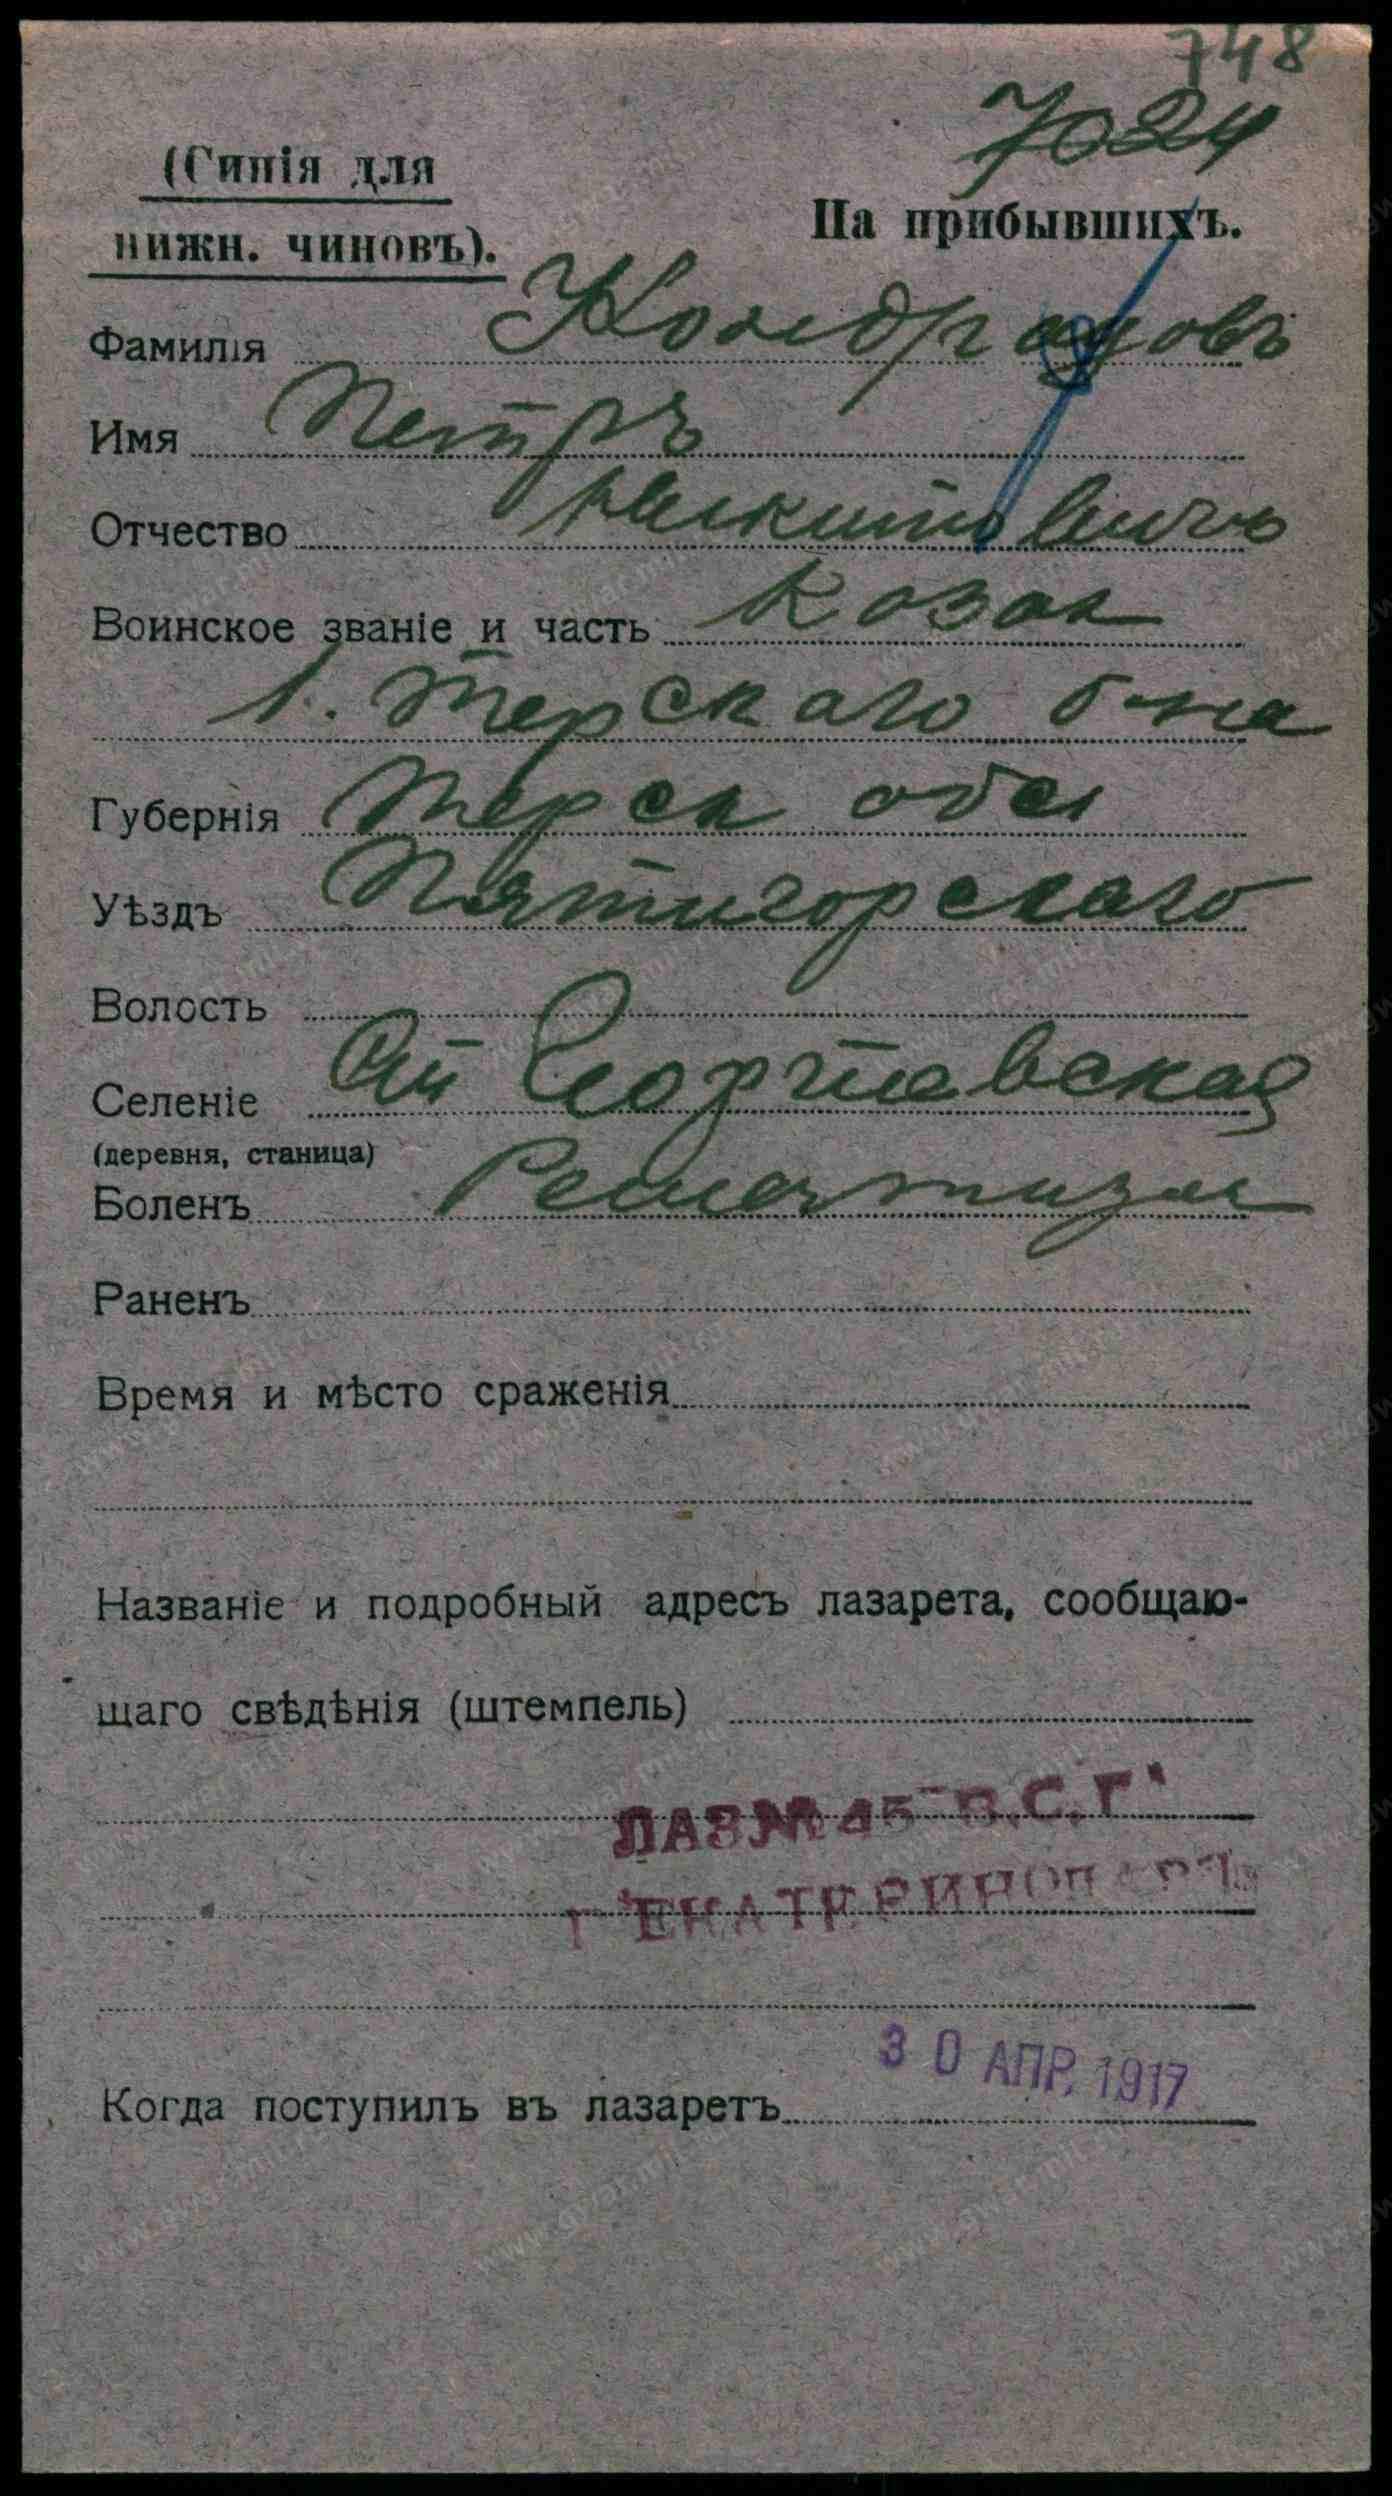 748
7024
(Синія для
нижн. чиновъ).
На прибывшихъ.
Фамилія Кондрацовъ
Имя Петръ
Отчество Никитовичъ
Воинское званіе и часть Козак
1. Терскаго б-на
Губернія Терск обл
Уѣздъ Пятигорскаго
Волость
Селеніе Ст Георгіевская
(деревня, станица)
Боленъ Ревматизм
Раненъ
Время и мѣсто сраженія
Названіе и подробный адресъ лазарета, сообщаю-
щаго свѣдѣнія (штемпель)
ЛАЗ № 45 В.С.Г.
г ЕКАТЕРИНОДАРЪ
Когда поступилъ въ лазаретъ 30 АПР. 1917
www.gwar.mil.ru